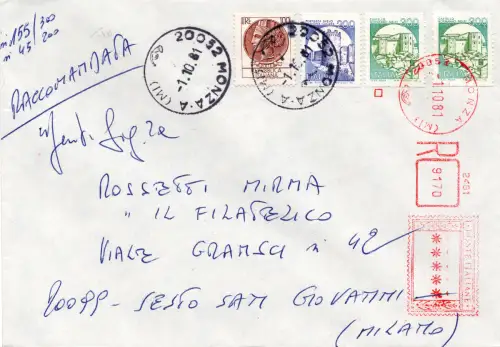 n° 155/300
n° 45 200
RACCOMANDATA
20052 MONZA-A (MI)
-1.10.81
LIRE 100
20052 MONZA-A (MI)
-1.10.81
200
200
200
20052 MONZA
(MI)
11081
R
9170
2451
POSTE ITALIANE
*****
Gent. Sig.ra
ROSSETTI MIRMA
" IL FILATELICO
VIALE GRAMSCI n 42
20099 - SESTO SAN GIOVANNI
(MILANO)